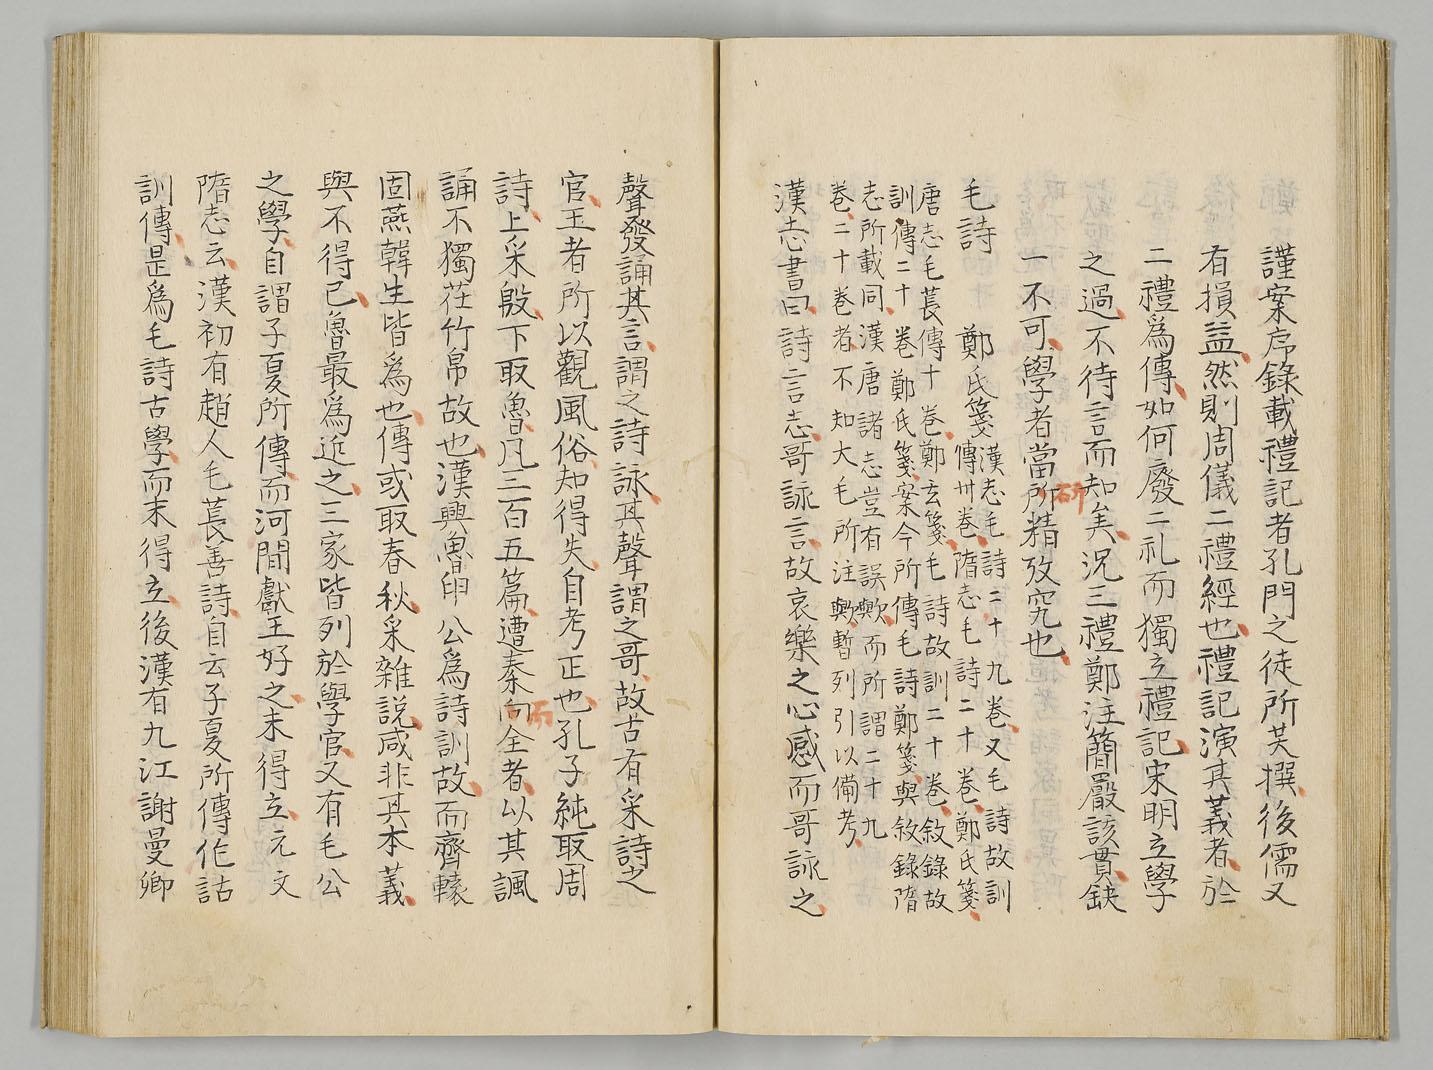 謹案序錄載禮記者孔門之徒所芖撰後儒又
有損益然則周儀二禮經也禮記演其義者於
二禮爲傳如何廢二礼而獨立禮記宋明立學
之過不待言而知矣況三禮鄭注簡嚴該貫鈌
一不可學者當所精攷究也
研
毛詩　鄭氏箋
漢志毛詩二十九卷又毛詩故訓
傳卅卷隋志毛詩二十卷鄭氏箋
唐志毛萇傳十卷鄭玄箋毛詩故訓二十卷敘錄故
訓傳二十卷鄭氏箋案今所傳毛詩鄭箋與敘錄隋
志所載同漢唐諸志豈有誤歟而所謂二十九
卷二十卷者不知大毛所注歟暫列引以備考
漢志書曰詩言志哥詠言故哀樂之心感而哥詠之
聲發誦其言謂之詩詠其聲謂之哥故古有采詩之
官王者所以觀風俗知得失自考正也孔子純取周
詩上采殷下取魯凡三百五篇遭秦向全者以其諷
而
誦不獨在竹帛故也漢興魯申公爲詩訓故而齊轅
固燕韓生皆爲也傳或取春秋采雜說咸非其本義
與不得已魯最爲近之三家皆列於學官又有毛公
之學自謂子夏所傳而河閒獻王好之未得立元文
隋志云漢初有趙人毛萇善詩自云子夏所傳作詁
訓傳是爲毛詩古學而未得立後漢有九江謝曼卿